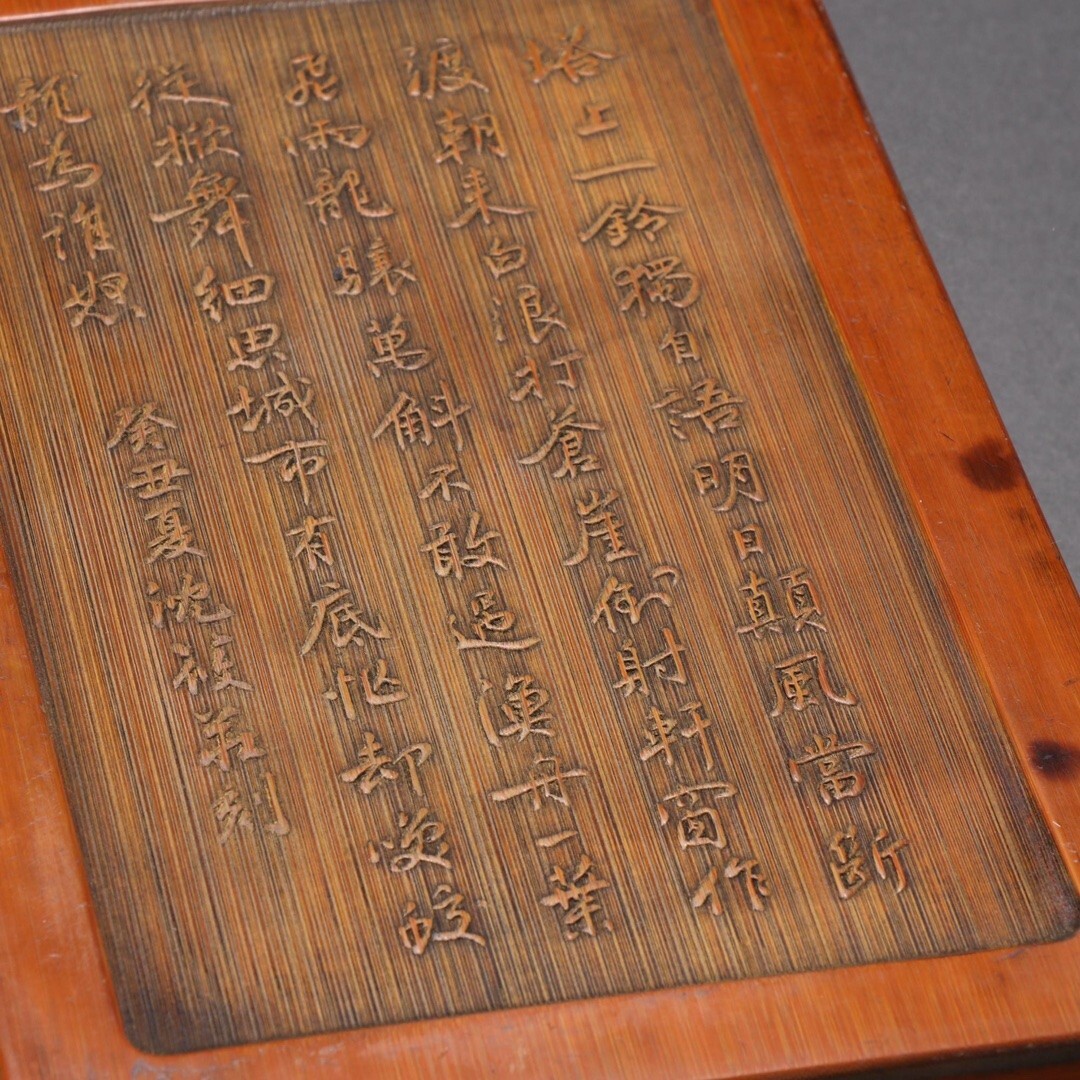 塔上一鈴獨自語明日顛風當斷
渡朝來白浪打倉崖倒射軒窗作
飛雨龍驤萬斛不敢過漁舟一葉
從掀舞細思城市有底忙却笑蛟
龍為誰怒
癸丑夏沈筱莊刻